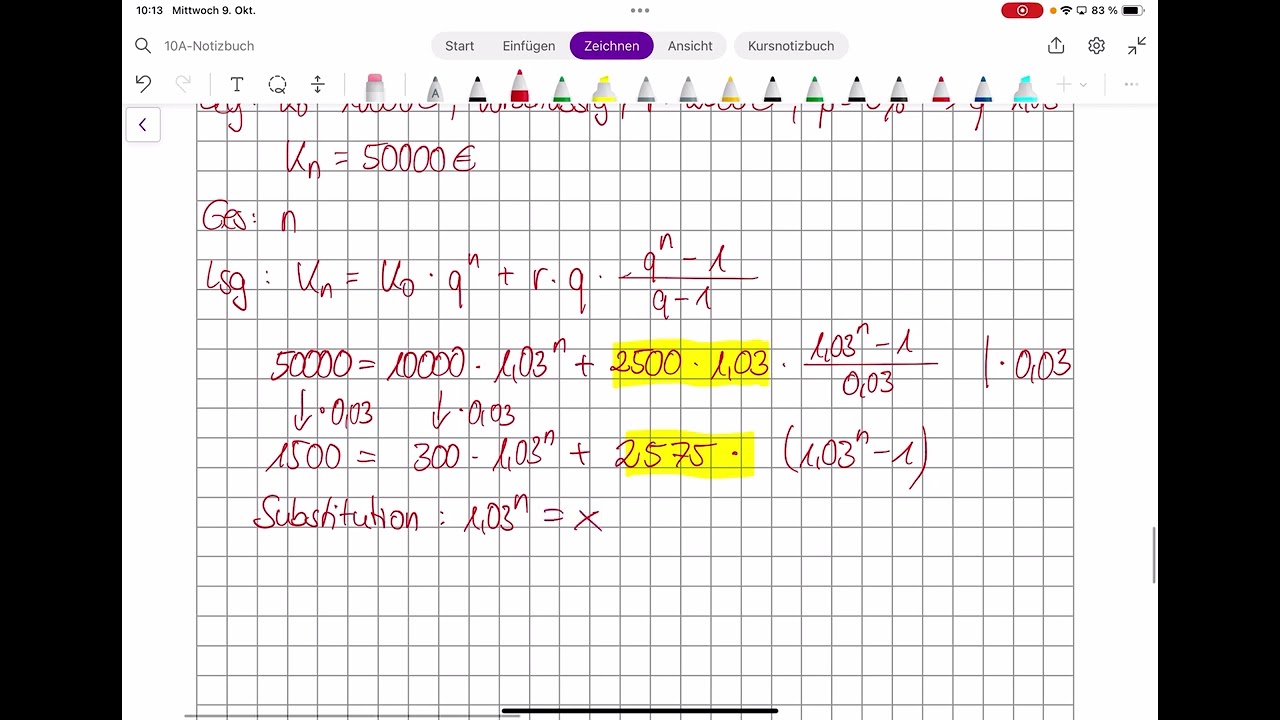 10:13 Mittwoch 9. Okt.
83 %
10A-Notizbuch
Start Einfügen Zeichnen Ansicht Kursnotizbuch
T A
Kn = 50000 €
Ges: n
Lsg: Kn = K0 · qⁿ + r · q · (qⁿ - 1)/(q - 1)
50000 = 10000 · 1,03ⁿ + 2500 · 1,03 · (1,03ⁿ - 1)/0,03 | · 0,03
↓ · 0,03 ↓ · 0,03
1500 = 300 · 1,03ⁿ + 2575 · (1,03ⁿ - 1)
Substitution: 1,03ⁿ = x